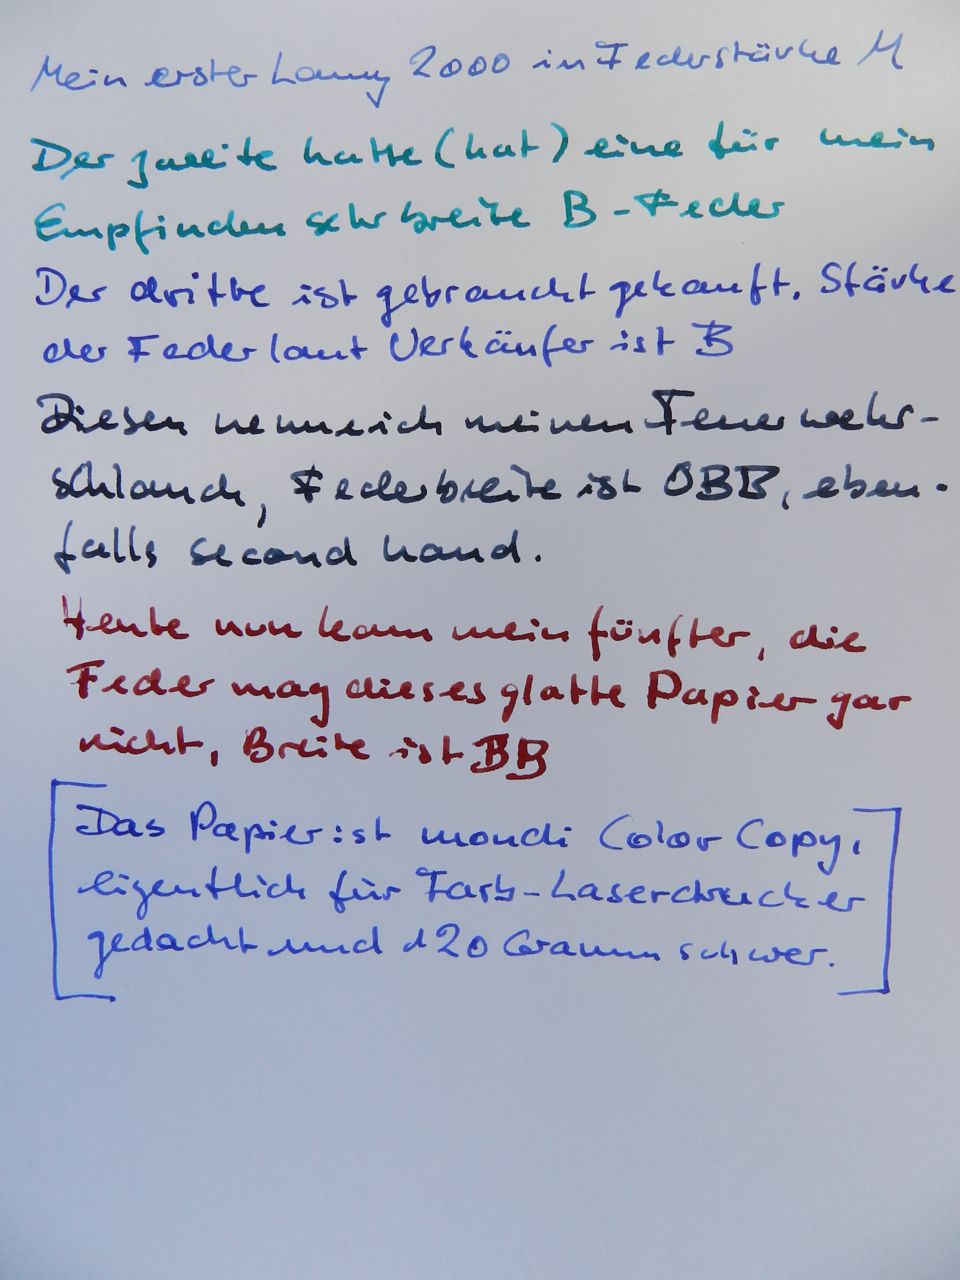 Mein erster Lamy 2000 in Federstärke M
Der zweite hatte (hat) eine für mein
Empfinden sehr breite B-Feder
Der dritte ist gebraucht gekauft. Stärke
der Feder laut Verkäufer ist B
Diesen nenne ich meinen Feuerwehr-
schlauch, Federbreite ist OBB, eben-
falls second hand.
Heute nun kam mein fünfter, die
Feder mag dieses glatte Papier gar
nicht, Breite ist BB
[Das Papier ist mondi Color Copy,
eigentlich für Farb-Laserdrucker
gedacht und 120 Gramm schwer.]